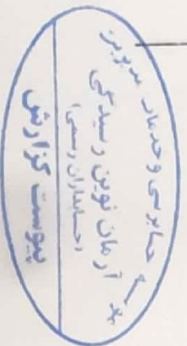 حسابرسی و خدمات مدیریت
آرمان نوین رسیدگی
(حسابداران رسمی)
پیوست گزارش